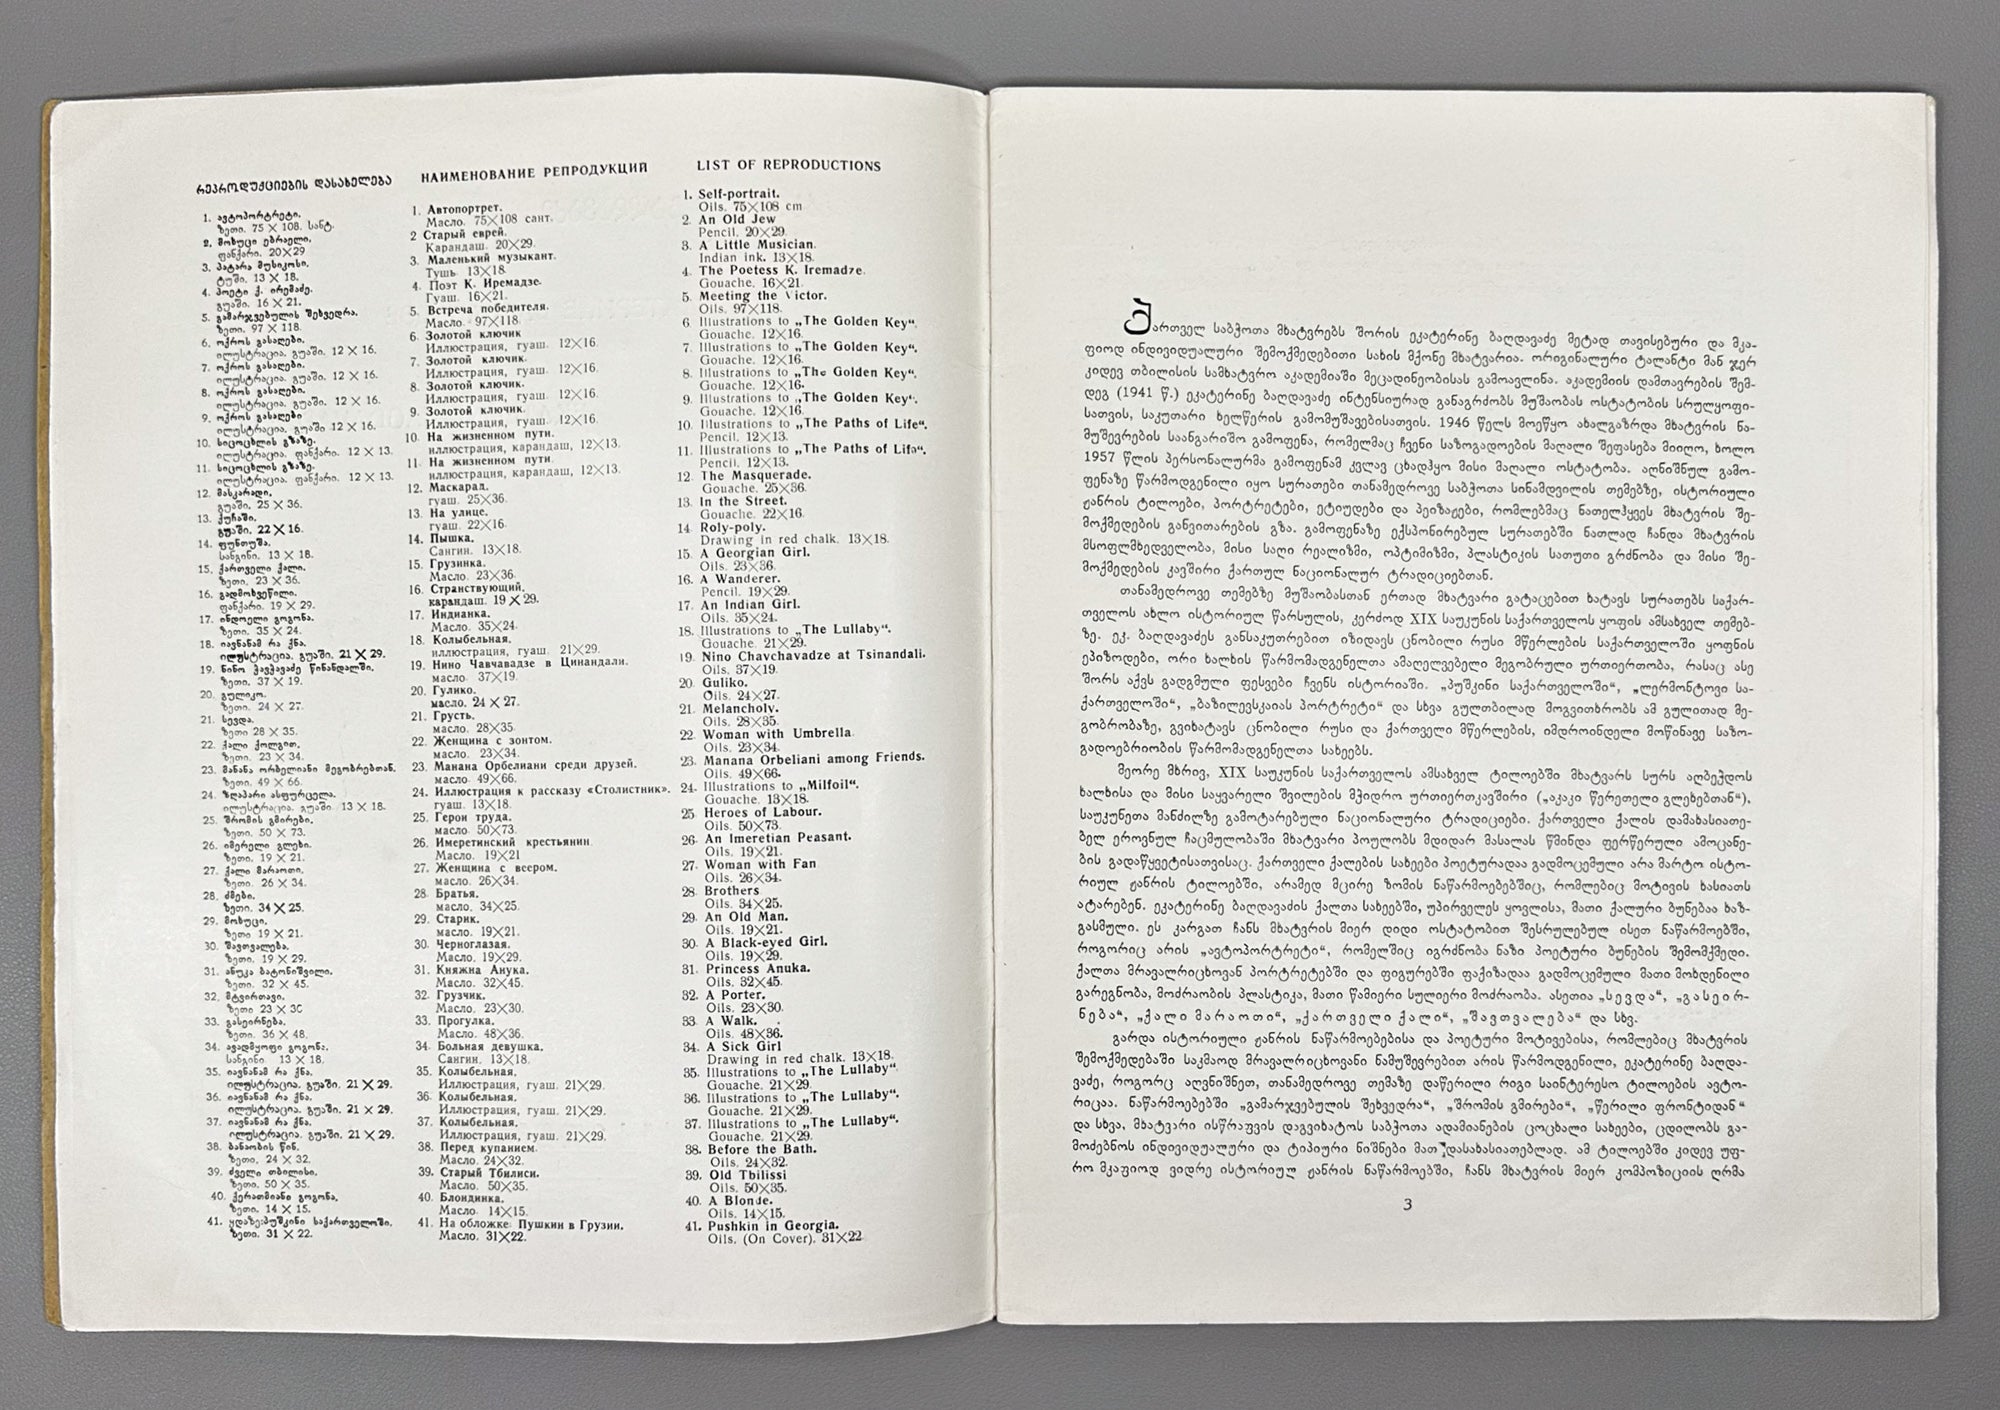 ᲠᲔᲞᲠᲝᲓᲣᲥᲪᲘᲔᲑᲘᲡ ᲓᲐᲡᲐᲮᲔᲚᲔᲑᲐ
1. ავტოპორტრეტი.
ზეთი. 75 × 108. სანტ.
2. მოხუცი ებრაელი.
ფანქარი. 20×29
3. პატარა მუსიკოსი.
ტუში. 13 × 18.
4. პოეტი ქ. ირემაძე.
გუაში. 16 × 21.
5. გამარჯვებულის შეხვედრა.
ზეთი. 97 × 118.
6. ოქროს გასაღები.
ილუსტრაცია. გუაში. 12 × 16.
7. ოქროს გასაღები.
ილუსტრაცია. გუაში. 12 × 16.
8. ოქროს გასაღები.
ილუსტრაცია. გუაში. 12 × 16.
9. ოქროს გასაღები
ილუსტრაცია. გუაში 12 × 16.
10. სიცოცხლის გზაზე.
ილუსტრაცია. ფანქარი. 12 × 13.
11. სიცოცხლის გზაზე.
ილუსტრაცია. ფანქარი. 12 × 13.
12. მასკარადი.
გუაში. 25 × 36.
13. ქუჩაში.
გუაში. 22 × 16.
14. ფუნთუშა.
სანგინი. 13 × 18.
15. ქართველი ქალი.
ზეთი. 23 × 36.
16. გადმოხვეწილი.
ფანქარი. 19 × 29.
17. ინდოელი გოგონა.
ზეთი. 35 × 24.
18. იავნანამ რა ქნა.
ილუსტრაცია. გუაში. 21 × 29.
19. ნინო ჭავჭავაძე წინანდალში.
ზეთი. 37 × 19.
20. გულიკო.
ზეთი. 24 × 27.
21. სევდა.
ზეთი 28 × 35.
22. ქალი ქოლგით.
ზეთი. 23 × 34.
23. მანანა ორბელიანი მეგობრებთან.
ზეთი. 49 × 66.
24. ზღაპარი ასფურცელა.
ილუსტრაცია. გუაში. 13 × 18.
25. შრომის გმირები.
ზეთი. 50 × 73.
26. იმერელი გლეხი.
ზეთი. 19 × 21.
27. ქალი მარაოთი.
ზეთი. 26 × 34.
28. ძმები.
ზეთი. 34 × 25.
29. მოხუცი.
ზეთი 19 × 21.
30. შავთვალება.
ზეთი. 19 × 29.
31. ანუკა ბატონიშვილი.
ზეთი. 32 × 45.
32. მტვირთავი.
ზეთი 23 × 30
33. გასეირნება.
ზეთი. 36 × 48.
34. ავადმყოფი გოგონა.
სანგინი. 13 × 18.
35. იავნანამ რა ქნა.
ილუსტრაცია. გუაში. 21 × 29.
36. იავნანამ რა ქნა.
ილუსტრაცია. გუაში. 21 × 29.
37. იავნანამ რა ქნა.
ილუსტრაცია. გუაში. 21 × 29.
38. ბანაობის წინ.
ზეთი. 24 × 32.
39. ძველი თბილისი.
ზეთი. 50 × 35.
40. ქერათმიანი გოგონა.
ზეთი. 14 × 15.
41. ყდაზე:პუშკინი საქართველოში.
ზეთი. 31 × 22.
НАИМЕНОВАНИЕ РЕПРОДУКЦИЙ
1. Автопортрет.
Масло. 75×108 сант.
2 Старый еврей.
Карандаш. 20×29.
3. Маленький музыкант.
Тушь. 13×18.
4. Поэт К. Иремадзе.
Гуаш. 16×21.
5. Встреча победителя.
Масло. 97×118
6. Золотой ключик
Иллюстрация, гуаш. 12×16.
7. Золотой ключик.
Иллюстрация, гуаш. 12×16.
8. Золотой ключик.
Иллюстрация, гуаш. 12×16.
9. Золотой ключик.
Иллюстрация, гуаш. 12×16.
10. На жизненном пути.
иллюстрация, карандаш, 12×13.
11. На жизненном пути.
иллюстрация, карандаш, 12×13.
12. Маскарад.
гуаш. 25×36.
13. На улице.
гуаш. 22×16.
14. Пышка.
Сангин. 13×18.
15. Грузинка.
Масло. 23×36.
16. Странствующий.
карандаш. 19 × 29.
17. Индианка.
Масло. 35×24.
18. Колыбельная.
иллюстрация, гуаш. 21×29.
19. Нино Чавчавадзе в Цинандали.
масло. 37×19.
20. Гулико.
масло. 24 × 27.
21. Грусть.
масло. 28×35.
22. Женщина с зонтом.
масло. 23×34.
23. Манана Орбелиани среди друзей.
масло. 49×66.
24. Иллюстрация к рассказу «Столистник».
гуаш. 13×18.
25. Герои труда.
масло. 50×73.
26. Имеретинский крестьянин
Масло. 19×21
27. Женщина с веером.
масло. 26×34.
28. Братья.
масло. 34×25.
29. Старик.
масло. 19×21.
30. Черноглазая.
Масло. 19×29.
31. Княжна Анука.
Масло. 32×45.
32. Грузчик.
Масло. 23×30.
33. Прогулка.
Масло. 48×36.
34. Больная девушка.
Сангин. 13×18.
35. Колыбельная.
Иллюстрация, гуаш. 21×29.
36. Колыбельная.
Иллюстрация, гуаш. 21×29.
37. Колыбельная.
Иллюстрация, гуаш. 21×29.
38. Перед купанием.
Масло. 24×32.
39. Старый Тбилиси.
Масло. 50×35.
40. Блондинка.
Масло. 14×15.
41. На обложке: Пушкин в Грузии.
Масло. 31×22.
LIST OF REPRODUCTIONS
1. Self-portrait.
Oils. 75×108 cm
2. An Old Jew
Pencil. 20×29.
3. A Little Musician.
Indian ink. 13×18.
4. The Poetess K. Iremadze.
Gouache. 16×21.
5. Meeting the Victor.
Oils. 97×118.
6 Illustrations to „The Golden Key“.
Gouache. 12×16.
7. Illustrations to „The Golden Key“.
Gouache. 12×16.
8. Illustrations to „The Golden Key“.
Gouache. 12×16.
9. Illustrations to „The Golden Key“.
Gouache. 12×16.
10. Illustrations to „The Paths of Life“.
Pencil. 12×13.
11. Illustrations to „The Paths of Life“.
Pencil. 12×13.
12. The Masquerade.
Gouache. 25×36.
13. In the Street.
Gouache. 22×16.
14. Roly-poly.
Drawing in red chalk. 13×18.
15. A Georgian Girl.
Oils. 23×36.
16. A Wanderer.
Pencil. 19×29.
17. An Indian Girl.
Oils. 35×24.
18. Illustrations to „The Lullaby“.
Gouache. 21×29.
19. Nino Chavchavadze at Tsinandali.
Oils. 37×19.
20. Guliko.
Oils. 24×27.
21. Melancholy.
Oils. 28×35.
22. Woman with Umbrella
Oils. 23×34.
23. Manana Orbeliani among Friends.
Oils. 49×66.
24. Illustrations to „Milfoil“.
Gouache. 13×18.
25. Heroes of Labour.
Oils. 50×73.
26. An Imeretian Peasant.
Oils. 19×21.
27. Woman with Fan
Oils. 26×34.
28. Brothers
Oils. 34×25.
29. An Old Man.
Oils. 19×21.
30. A Black-eyed Girl.
Oils. 19×29.
31. Princess Anuka.
Oils. 32×45.
32. A Porter.
Oils. 23×30.
33. A Walk.
Oils. 48×36.
34. A Sick Girl
Drawing in red chalk. 13×18.
35. Illustrations to „The Lullaby“.
Gouache. 21×29.
36. Illustrations to „The Lullaby“.
Gouache. 21×29.
37. Illustrations to „The Lullaby“.
Gouache. 21×29.
38. Before the Bath.
Oils. 24×32.
39. Old Tbilissi
Oils. 50×35.
40. A Blonde.
Oils. 14×15.
41. Pushkin in Georgia.
Oils. (On Cover). 31×22
ქართველ საბჭოთა მხატვრებს შორის ეკატერინე ბაღდავაძე მეტად თავისებური და მკა-
ფიოდ ინდივიდუალური შემოქმედებითი სახის მქონე მხატვარია. ორიგინალური ტალანტი მან ჯერ
კიდევ თბილისის სამხატვრო აკადემიაში მეცადინეობისას გამოავლინა. აკადემიის დამთავრების შემ-
დეგ (1941 წ.) ეკატერინე ბაღდავაძე ინტენსიურად განაგრძობს მუშაობას ოსტატობის სრულყოფი-
სათვის, საკუთარი ხელწერის გამომუშავებისათვის. 1946 წელს მოეწყო ახალგაზრდა მხატვრის ნა-
მუშევრების საანგარიშო გამოფენა, რომელმაც ჩვენი საზოგადოების მაღალი შეფასება მიიღო, ხოლო
1957 წლის პერსონალურმა გამოფენამ კვლავ ცხადჰყო მისი მაღალი ოსტატობა. აღნიშნულ გამო-
ფენაზე წარმოდგენილი იყო სურათები თანამედროვე საბჭოთა სინამდვილის თემებზე, ისტორიული
ჟანრის ტილოები, პორტრეტები, ეტიუდები და პეიზაჟები, რომლებმაც ნათელჰყვეს მხატვრის შე-
მოქმედების განვითარების გზა. გამოფენაზე ექსპონირებულ სურათებში ნათლად ჩანდა მხატვრის
მსოფლმხედველობა, მისი საღი რეალიზმი, ოპტიმიზმი, პლასტიკის სათუთი გრძნობა და მისი შე-
მოქმედების კავშირი ქართულ ნაციონალურ ტრადიციებთან.
თანამედროვე თემებზე მუშაობასთან ერთად მხატვარი გატაცებით ხატავს სურათებს საქარ-
თველოს ახლო ისტორიულ წარსულის, კერძოდ XIX საუკუნის საქართველოს ყოფის ამსახველ თემებ-
ზე. ეკ. ბაღდავაძეს განსაკუთრებით იზიდავს ცნობილი რუსი მწერლების საქართველოში ყოფნის
ეპიზოდები, ორი ხალხის წარმომადგენელთა ამაღელვებელი მეგობრული ურთიერთობა, რასაც ასე
შორს აქვს გადგმული ფესვები ჩვენს ისტორიაში. „პუშკინი საქართველოში“, „ლერმონტოვი სა-
ქართველოში“, „ბაზილევსკაიას პორტრეტი“ და სხვა გულთბილად მოგვითხრობს ამ გულითად მე-
გობრობაზე, გვიხატავს ცნობილი რუსი და ქართველი მწერლების, იმდროინდელი მოწინავე საზო-
გადოებრიობის წარმომადგენელთა სახეებს.
მეორე მხრივ, XIX საუკუნის საქართველოს ამსახველ ტილოებში მხატვარს სურს აღბეჭდოს
ხალხისა და მისი საყვარელი შვილების მჭიდრო ურთიერთკავშირი („აკაკი წერეთელი გლეხებთან“),
საუკუნეთა მანძილზე გამოტარებული ნაციონალური ტრადიციები. ქართველი ქალის დამახასიათე-
ბელ ეროვნულ ჩაცმულობაში მხატვარი პოულობს მდიდარ მასალას წმინდა ფერწერული ამოცანე-
ბის გადაწყვეტისათვისაც. ქართველი ქალების სახეები პოეტურადაა გადმოცემული არა მარტო ისტო-
რიულ ჟანრის ტილოებში, არამედ მცირე ზომის ნაწარმოებებშიც, რომლებიც მოტივის ხასიათს
ატარებენ. ეკატერინე ბაღდავაძის ქალთა სახეებში, უპირველეს ყოვლისა, მათი ქალური ბუნებაა ხაზ-
გასმული. ეს კარგათ ჩანს მხატვრის მიერ დიდი ოსტატობით შესრულებულ ისეთ ნაწარმოებში,
როგორიც არის „ავტოპორტრეტი“, რომელშიც იგრძნობა ნაზი პოეტური ბუნების შემომქმედი.
ქალთა მრავალრიცხოვან პორტრეტებში და ფიგურებში ფაქიზადაა გადმოცემული მათი მოხდენილი
გარეგნობა, მოძრაობის პლასტიკა, მათი წამიერი სულიერი მოძრაობა. ასეთია „სევდა“, „გასეირ-
ნება“, „ქალი მარაოთი“, „ქართველი ქალი“, „შავთვალება“ და სხვ.
გარდა ისტორიული ჟანრის ნაწარმოებებისა და პოეტური მოტივებისა, რომლებიც მხატვრის
შემოქმედებაში საკმაოდ მრავალრიცხოვანი ნამუშევრებით არის წარმოდგენილი, ეკატერინე ბაღდა-
ვაძე, როგორც აღვნიშნეთ, თანამედროვე თემაზე დაწერილი რიგი საინტერესო ტილოების ავტო-
რიცაა. ნაწარმოებებში „გამარჯვებულის შეხვედრა“, „შრომის გმირები“, „წერილი ფრონტიდან“
და სხვა, მხატვარი ისწრაფვის დაგვიხატოს საბჭოთა ადამიანების ცოცხალი სახეები, ცდილობს გა-
მოძებნოს ინდივიდუალური და ტიპიური ნიშნები მათ დასახასიათებლად. ამ ტილოებში კიდევ უფ-
რო მკაფიოდ ვიდრე ისტორიულ ჟანრის ნაწარმოებში, ჩანს მხატვრის მიერ კომპოზიციის ღრმა
3